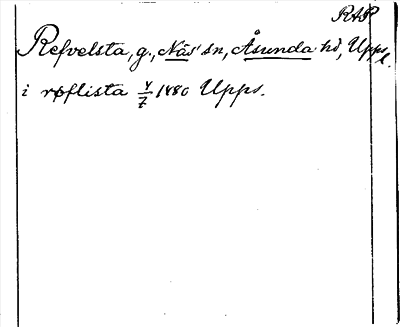 RAP
Refvelsta, g., Näs sn, Åsunda hd, Upps. l.
i röflista 4/7 1880 Upps.